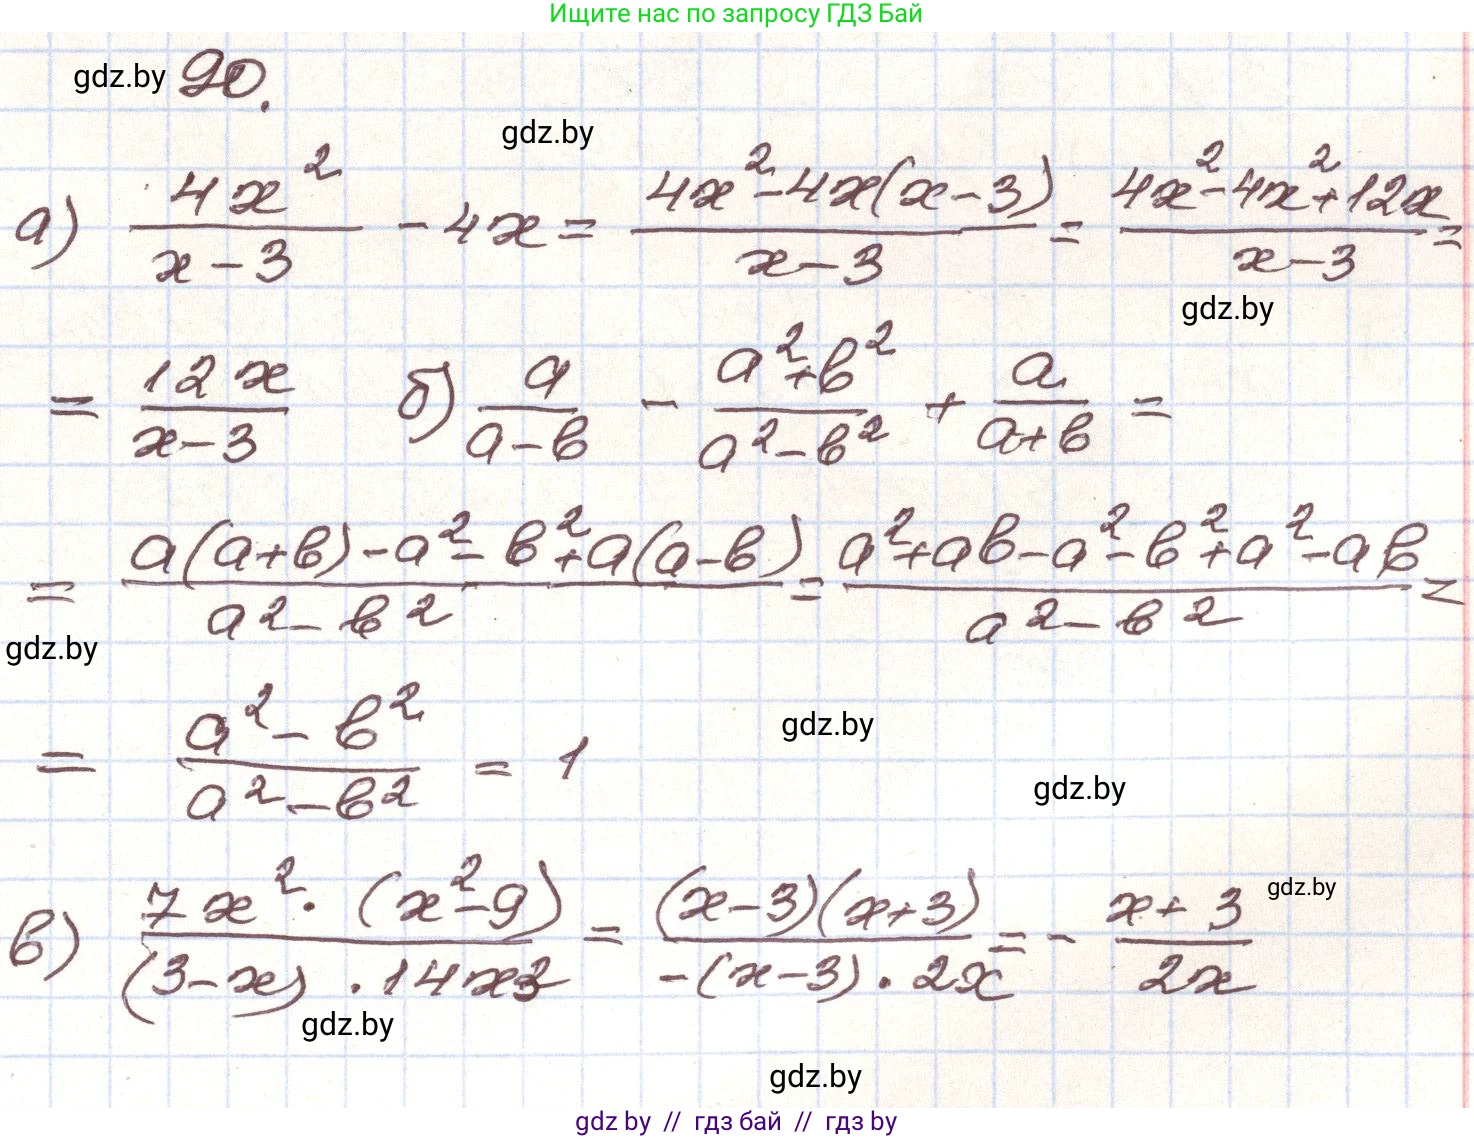 Ищите нас по запросу ГДЗ Бай
gdz.by 90.
gdz.by
а) 4x²/(x-3) - 4x = (4x²-4x(x-3))/(x-3) = (4x²-4x²+12x)/(x-3) =
gdz.by
= 12x/(x-3) б) a/(a-b) - (a²+b²)/(a²-b²) + a/(a+b) =
= (a(a+b)-a²-b²+a(a-b))/(a²-b²) = (a²+ab-a²-b²+a²-ab)/(a²-b²) =
gdz.by
= (a²-b²)/(a²-b²) = 1
gdz.by
gdz.by
в) (7x²·(x²-9))/((3-x)·14x³) = ((x-3)(x+3))/(-(x-3)·2x) = - (x+3)/(2x)
gdz.by
gdz.by
gdz.by
gdz by // гдз бай // гдз by